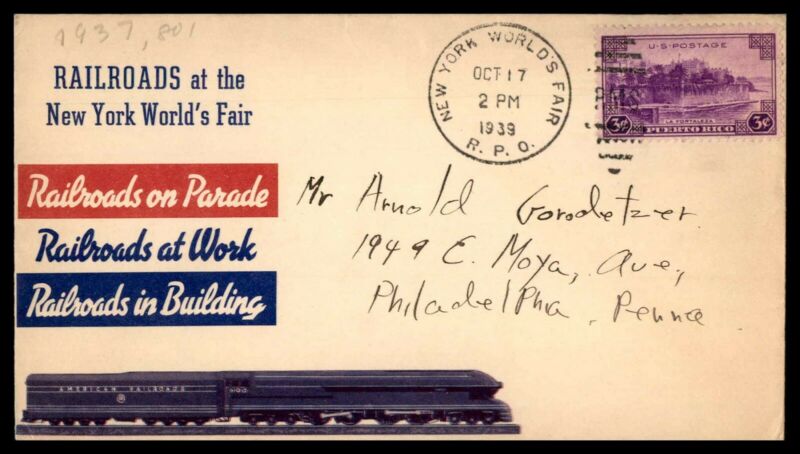 1937, 801
RAILROADS at the
New York World's Fair
Railroads on Parade
Railroads at Work
Railroads in Building
AMERICAN RAILROADS
6100
NEW YORK WORLD'S FAIR
OCT 17
2 PM
1939
R. P. O.
RMS
U·S·POSTAGE
LA FORTALEZA
3¢ PUERTO RICO 3¢
Mr Arnold Gorodetzer
1949 E. Moya, Ave,
Philadelphia, Penna